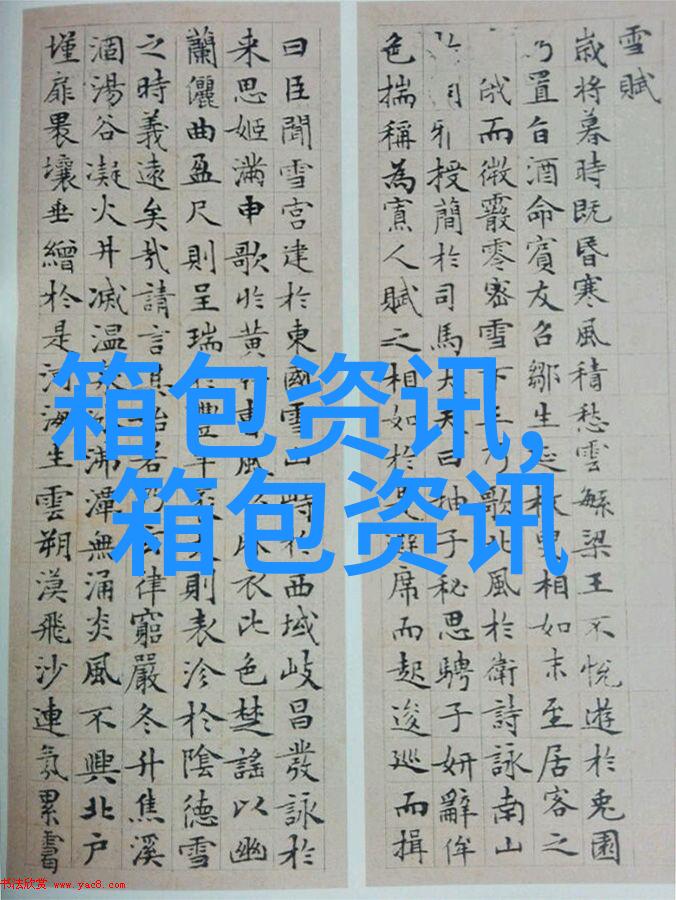 雪賦
歲將暮時既昏寒風積愁雲緐梁王不悅遊於兔園
乃置旨酒命賓友召鄒生延枚叟相如末至居客之
俄而微霰零密雪下王乃歌北風於衛詩詠南山
雅授簡於司馬大夫曰抽子秘思騁子妍辭侔
色揣稱為寡人賦之相如於是避席而起逡巡而揖
曰臣聞雪宮建於東國雪山峙於西域岐昌發詠於
来思姬滿申歌於黃竹曹風以麻衣比色楚謠以幽
蘭儷曲盈尺則呈瑞於豐年袤丈則表沴於陰德雪
之時義遠矣哉請言其始若乃玄律窮嚴冬升焦溪
涸湯谷凝火井滅温泉冰沸潭無涌炎風不興北户
墐扉裸壤垂繒於是河海生雲朔漠飛沙連氛累靄
箱包资讯,
箱包资讯
书法欣赏 www.yac8.com